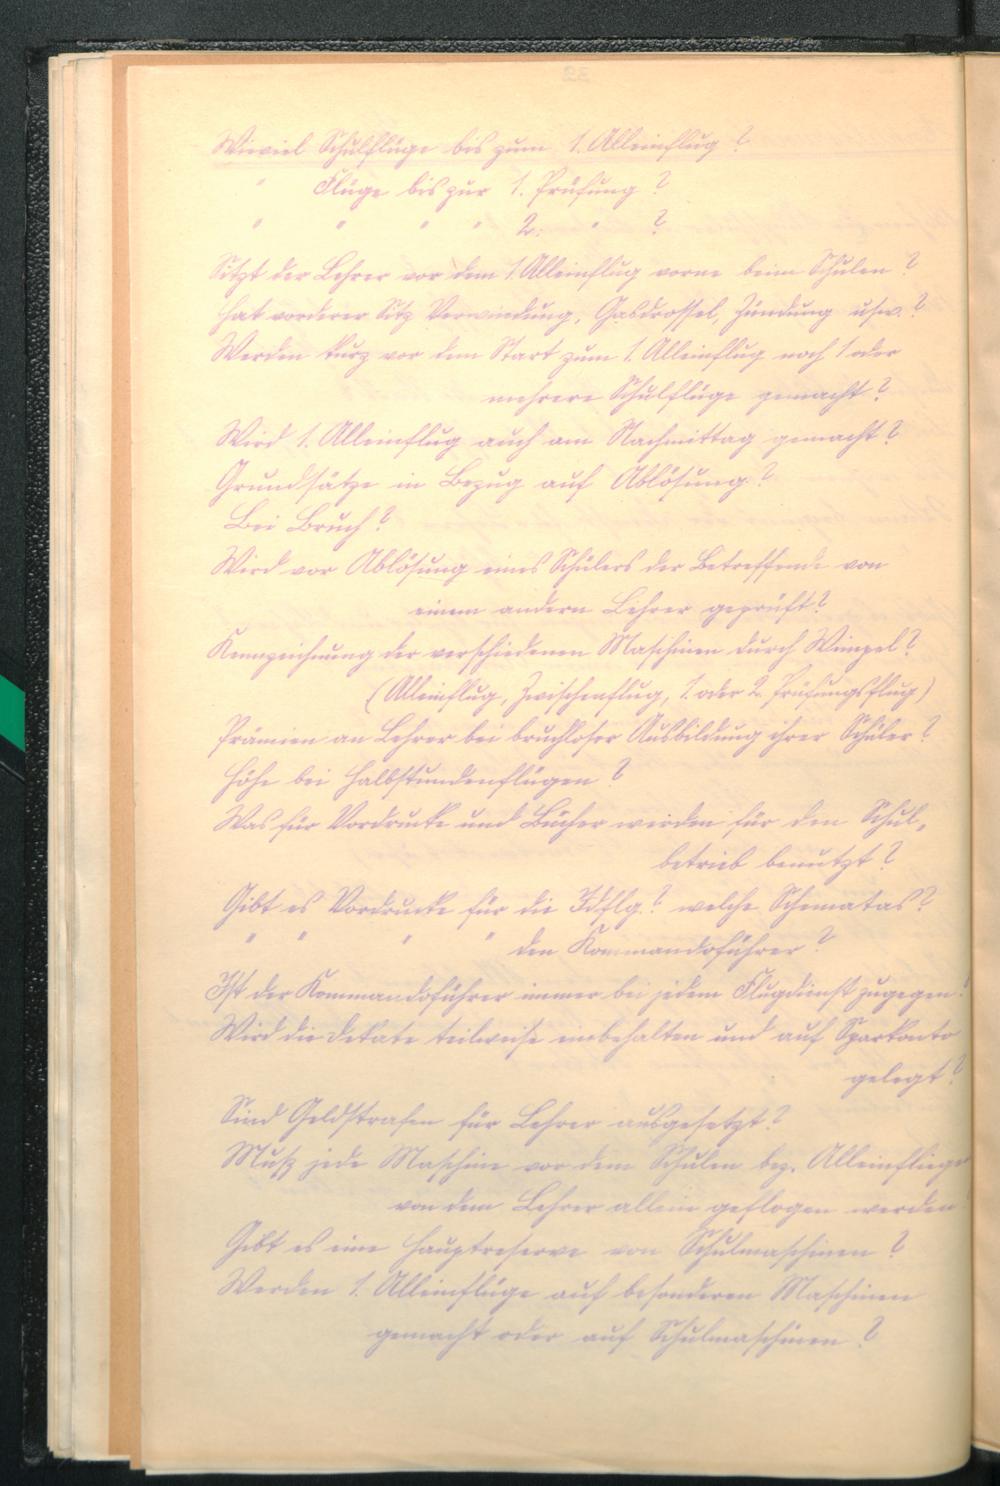 Wieviel Schulflüge bis zum 1. Alleinflug?
" Flüge bis zur 1. Prüfung?
" " " " 2. " ?
Sitzt der Lehrer vor dem 1. Alleinflug vorne beim Schulen?
Hat vorderer Sitz Verwindung, Gasdrossel, Zündung usw.?
Werden kurz vor dem Start zum 1. Alleinflug noch 1 oder
mehrere Schulflüge gemacht?
Wird 1. Alleinflug auch am Nachmittag gemacht?
Grundsätze in Bezug auf Ablösung?
Bei Bruch?
Wird vor Ablösung eines Schülers der Betreffende von
einem andern Lehrer geprüft?
Kennzeichnung der verschiedenen Maschinen durch Wimpel?
(Alleinflug, Zwischenflug, 1. oder 2. Prüfungsflug)
Prämien an Lehrer bei bruchloser Ausbildung ihrer Schüler?
Höhe bei Halbstundenflügen?
Was für Vordrucke und Bücher werden für den Schul-
betrieb benutzt?
Gibt es Vordrucke für die Idflg.? welche Schematas?
" " " " den Kommandoführer?
Ist der Kommandoführer immer bei jedem Flugdienst zugegen?
Wird die Dekate teilweise einbehalten und auf Sparkonto
gelegt?
Sind Geldstrafen für Lehrer ausgesetzt?
Muß jede Maschine vor dem Schulen bez. Alleinfliegen
von dem Lehrer allein geflogen werden
Gibt es eine Hauptreserve von Schulmaschinen?
Werden 1. Alleinflüge auf besonderen Maschinen
gemacht oder auf Schulmaschinen?